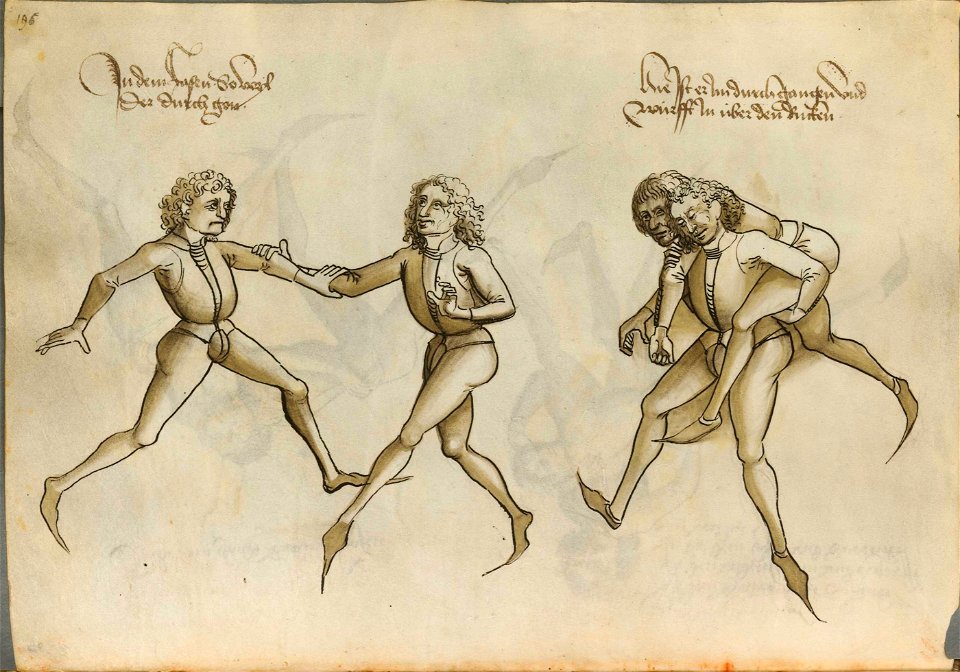 196
In dem fassen So wil
der durch gon
Hie Ist er Im durch gangen und
wurfft In über den Rucken